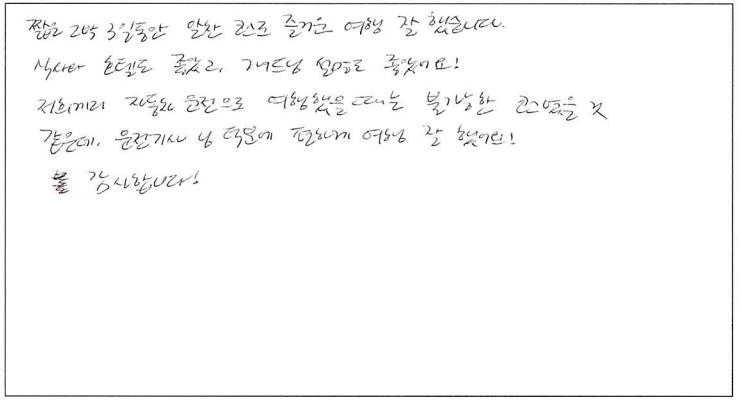 짧은 2박 3일동안 알찬 코스로 즐거운 여행 잘 했습니다.
식사나 호텔도 좋았고, 가이드님 설명도 좋았어요!
저희끼리 자동차 운전으로 여행했을 때는 불가능한 코스였을 것
같은데, 운전기사 님 덕분에 편하게 여행 잘 했어요!
감사합니다!